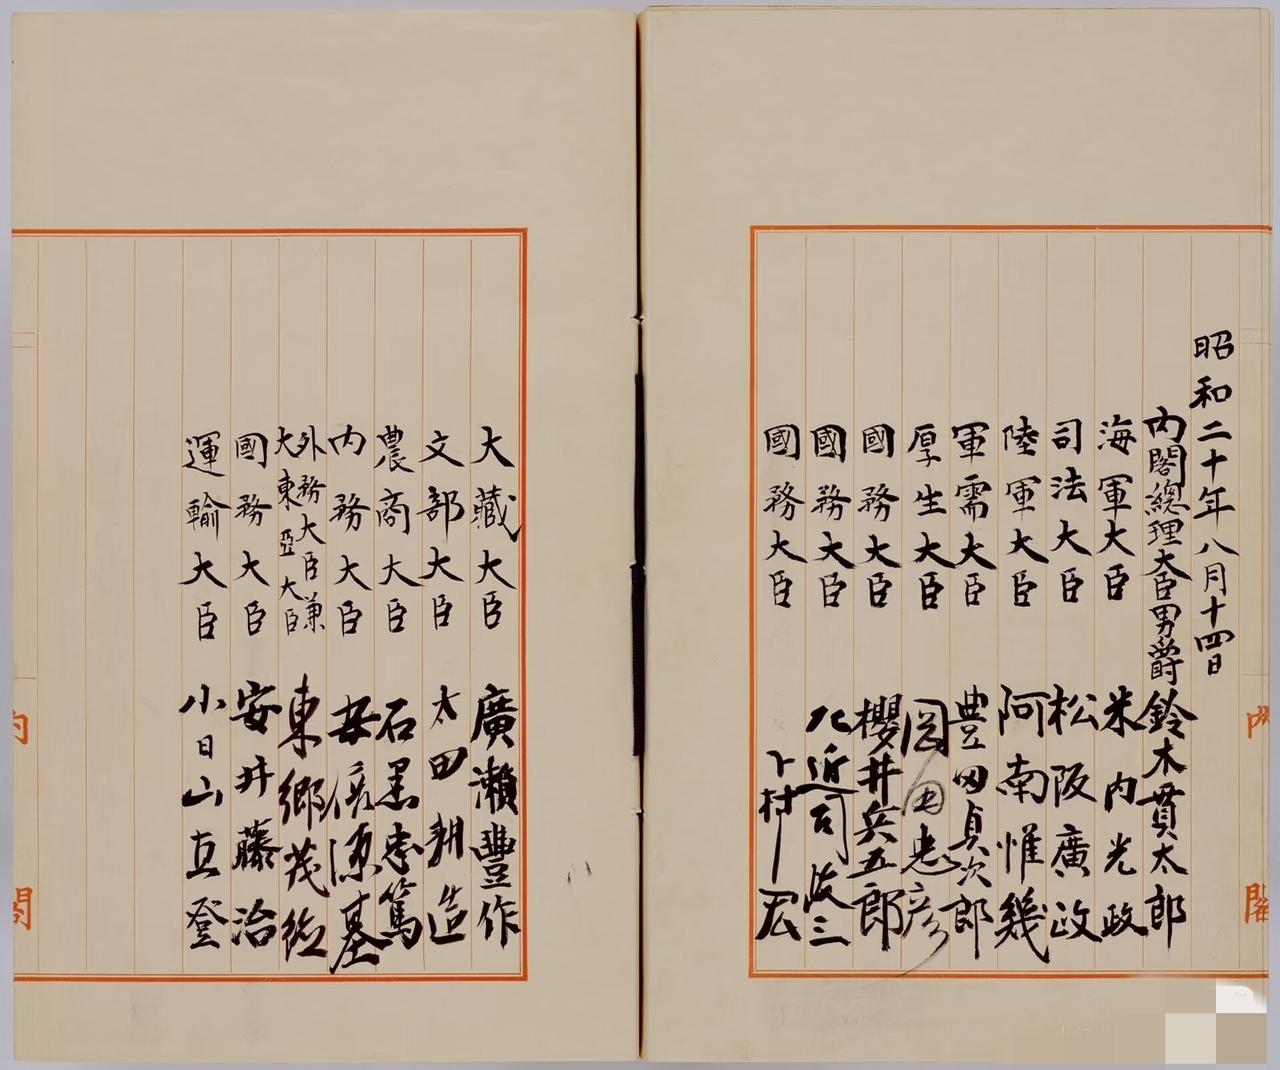 昭和二十年八月十四日
内閣總理大臣男爵鈴木貫太郎
海軍大臣 米内光政
司法大臣 松阪廣政
陸軍大臣 阿南惟幾
軍需大臣 豊田貞次郎
厚生大臣 岡田忠彦
國務大臣 櫻井兵五郎
國務大臣 左近司政三
國務大臣 下村宏
大藏大臣 廣瀬豊作
文部大臣 太田耕造
農商大臣 石黒忠篤
内務大臣 安倍源基
外務大臣兼
大東亞大臣 東郷茂徳
國務大臣 安井藤治
運輸大臣 小日山直登
内閣
内閣